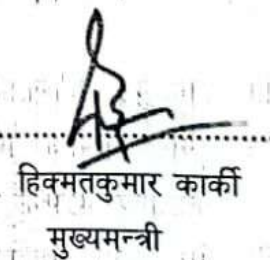 हिक्मतकुमार कार्की
मुख्यमन्त्री